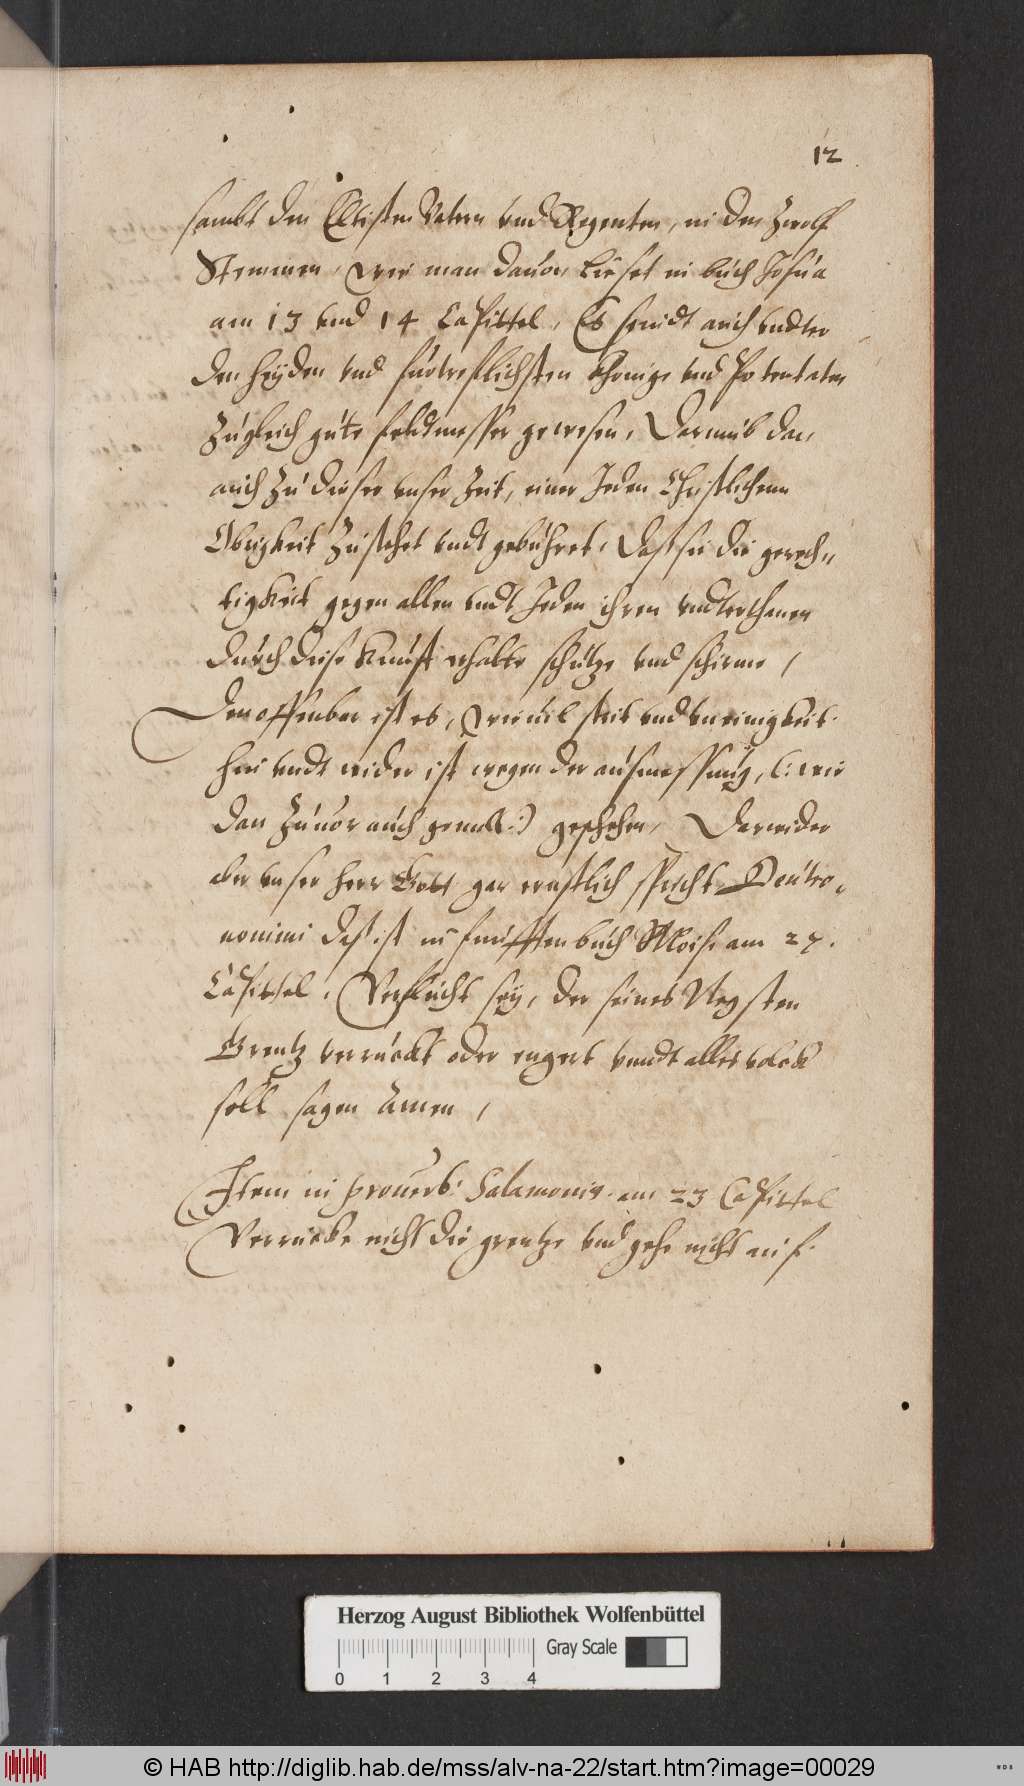 12
sambt den Eltisten Vatern vnd Regenten, in den Zwolf
Stemmen, wie man dauon lieset in buch Josua
am 13 vnd 14 Capittel, Es seindt auch vndter
den heyden vnd furtreflichsten Khonige vnd Potentaten
Zugleich gute feldmesser gewesen, Darumb dan,
auch Zu dieser vnser Zeit, einer Jeden Christlichenn
Obrigkeit Zustehet vndt gebuhret, das sie die gerech„
tigkeit gegen allen vndt Jeden ihren vndterthanen
durch diese Kunst erhalte schutze vnd schirme /
Den offenbar ist es, wieuil streit vnd vneinigkeit
hin vndt wider ist wegen der ausmessung, (: wie
dan Zuuor auch gemelt :) geschehen, Darwider
aber vnser herr Gott gar ernstlich spricht Deutro„
nomini Das ist in funfften buch Moise am 27.
Capittel. Verflucht sey, der seines Negsten
Grentz verruckt oder engert vnndt alles volck
soll sagen Amen /
Item in prouerb: Salamonis am 23 Capittel
Verrucke nicht die grentze vnd gehe nicht auf
Herzog August Bibliothek Wolfenbüttel
Gray Scale
0 1 2 3 4
© HAB http://diglib.hab.de/mss/alv-na-22/start.htm?image=00029